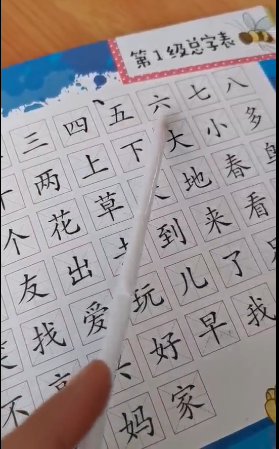 第1级总字表
三 四 五 六 七 八
两 上 下 大 小 多
个 花 草 地 春
友 出 到 来 看
找 爱 玩 儿 了
不 好 早 我
妈 家